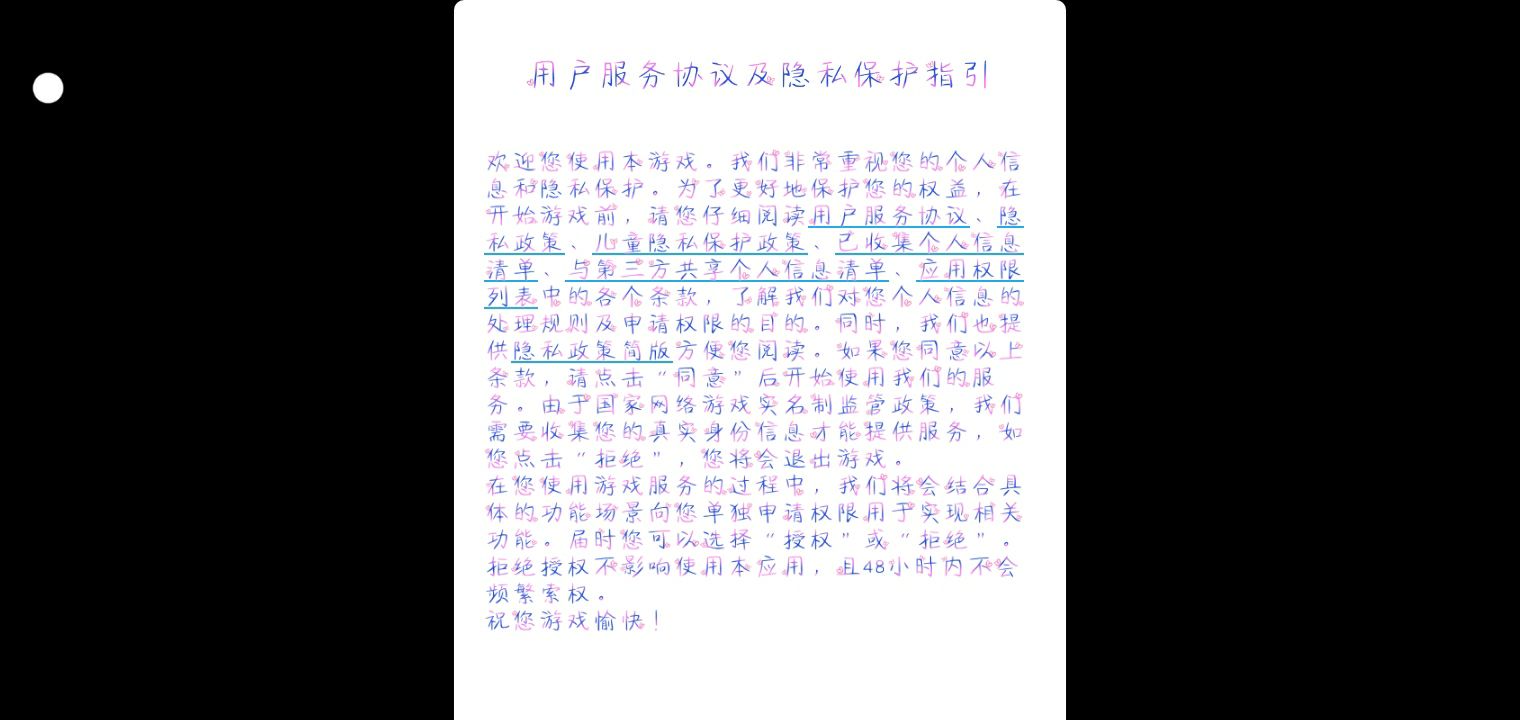 用户服务协议及隐私保护指引
欢迎您使用本游戏。我们非常重视您的个人信
息和隐私保护。为了更好地保护您的权益，在
开始游戏前，请您仔细阅读用户服务协议、隐
私政策、儿童隐私保护政策、已收集个人信息
清单、与第三方共享个人信息清单、应用权限
列表中的各个条款，了解我们对您个人信息的
处理规则及申请权限的目的。同时，我们也提
供隐私政策简版方便您阅读。如果您同意以上
条款，请点击“同意”后开始使用我们的服
务。由于国家网络游戏实名制监管政策，我们
需要收集您的真实身份信息才能提供服务，如
您点击“拒绝”，您将会退出游戏。
在您使用游戏服务的过程中，我们将会结合具
体的功能场景向您单独申请权限用于实现相关
功能。届时您可以选择“授权”或“拒绝”。
拒绝授权不影响使用本应用，且48小时内不会
频繁索权。
祝您游戏愉快！